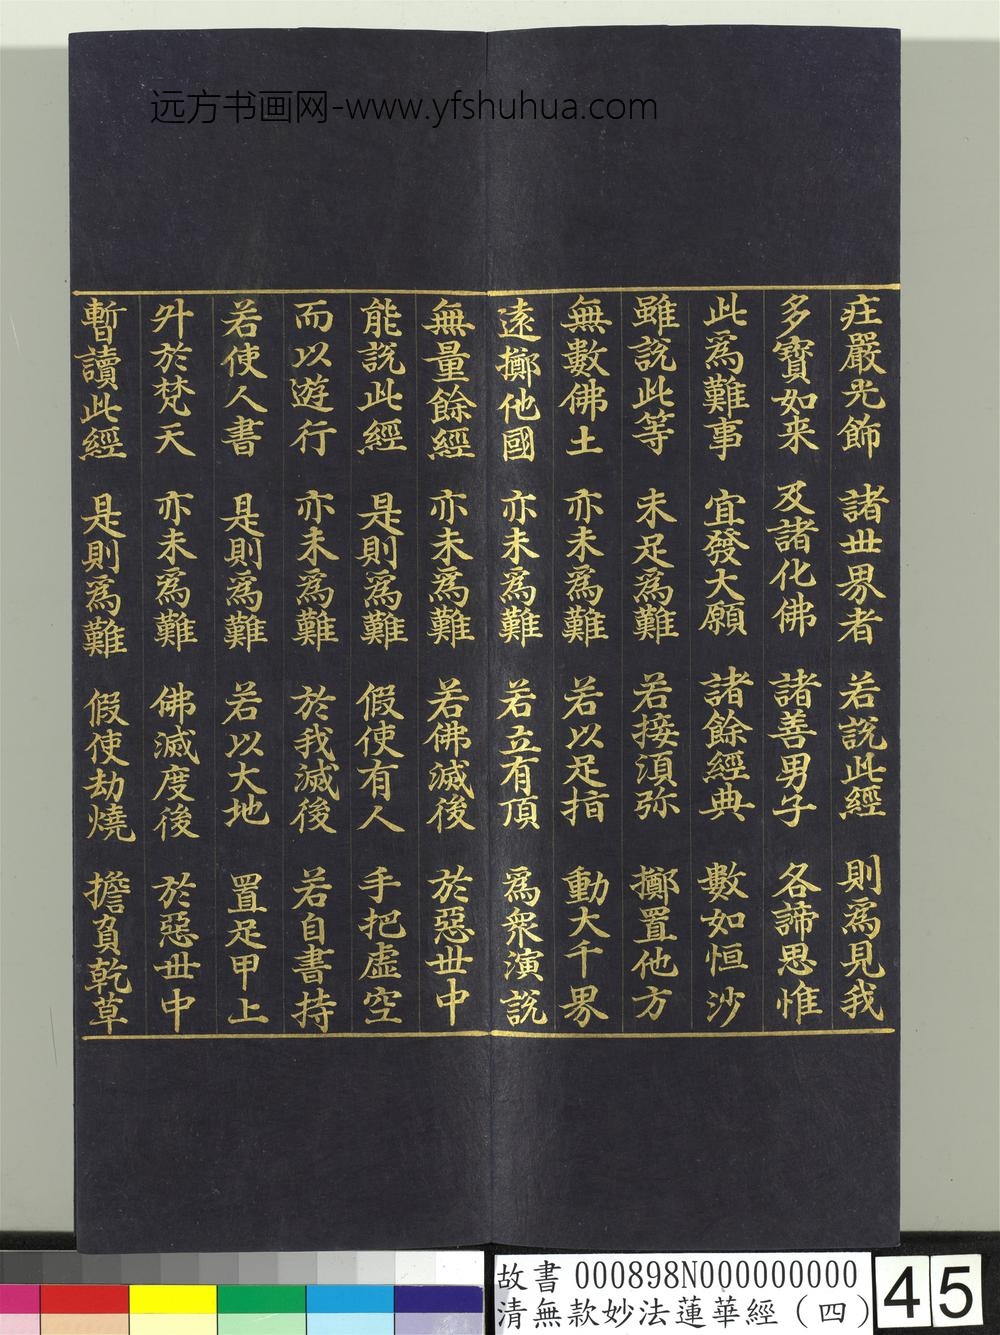 远方书画网-www.yfshuhua.com
庄嚴光飾 諸世界者 若說此經 則爲見我
多寶如来 及諸化佛 諸善男子 各諦思惟
此爲難事 宜發大願 諸餘經典 數如恒沙
雖說此等 未足爲難 若接湏弥 擲置他方
無數佛土 亦未爲難 若以足指 動大千界
遠擲他國 亦未爲難 若立有頂 爲衆演說
無量餘經 亦未爲難 若佛滅後 於惡世中
能說此經 是則爲難 假使有人 手把虛空
而以遊行 亦未爲難 於我滅後 若自書持
若使人書 是則爲難 若以大地 置足甲上
升於梵天 亦未爲難 佛滅度後 於惡世中
暫讀此經 是則爲難 假使劫燒 擔負乾草
故書 000898N000000000
清無款妙法蓮華經（四）
45